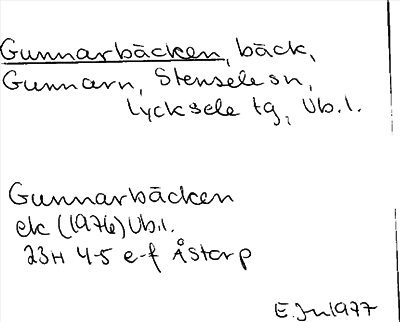 Gunnarbäcken, bäck,
Gunnarn, Stensele sn,
Lycksele tg, Vb.l.
Gunnarbäcken
ek (1976) Vb.l.
23H 4-5 e-f Åstorp
E.Jn 1977